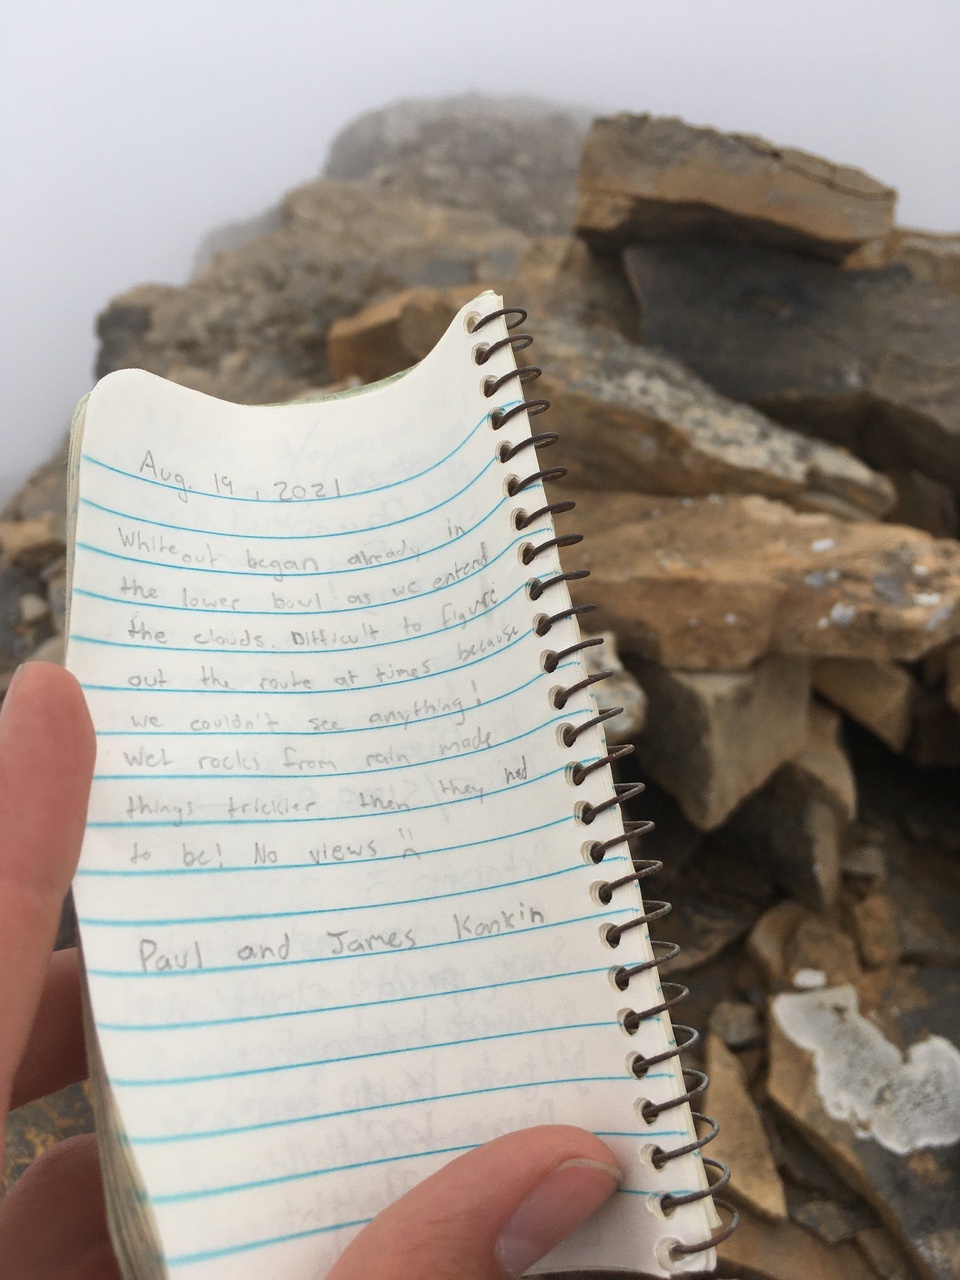 Aug. 19, 2021
Whiteout began already in
the lower bowl as we enterd
the clouds. Difficult to figure
out the route at times because
we couldn't see anything!
Wet rocks from rain made
things trickier then they had
to be! No views :(
Paul and James Konkin